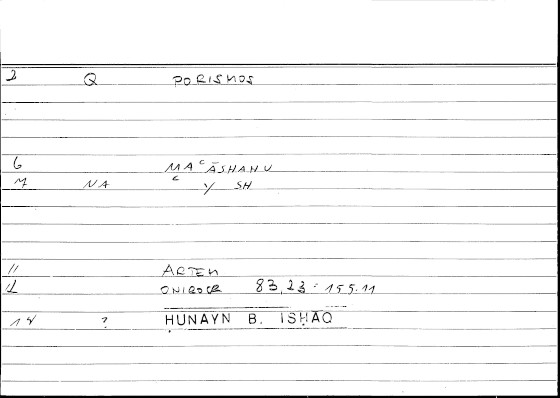 2 Q PORISMOS
6 MAʿĀSHAHU
M NA ʿ Y SH
11 ARTEM
12 ONIROCR 83,23 = 155.11
18 ? ḤUNAYN B. ISḤĀQ